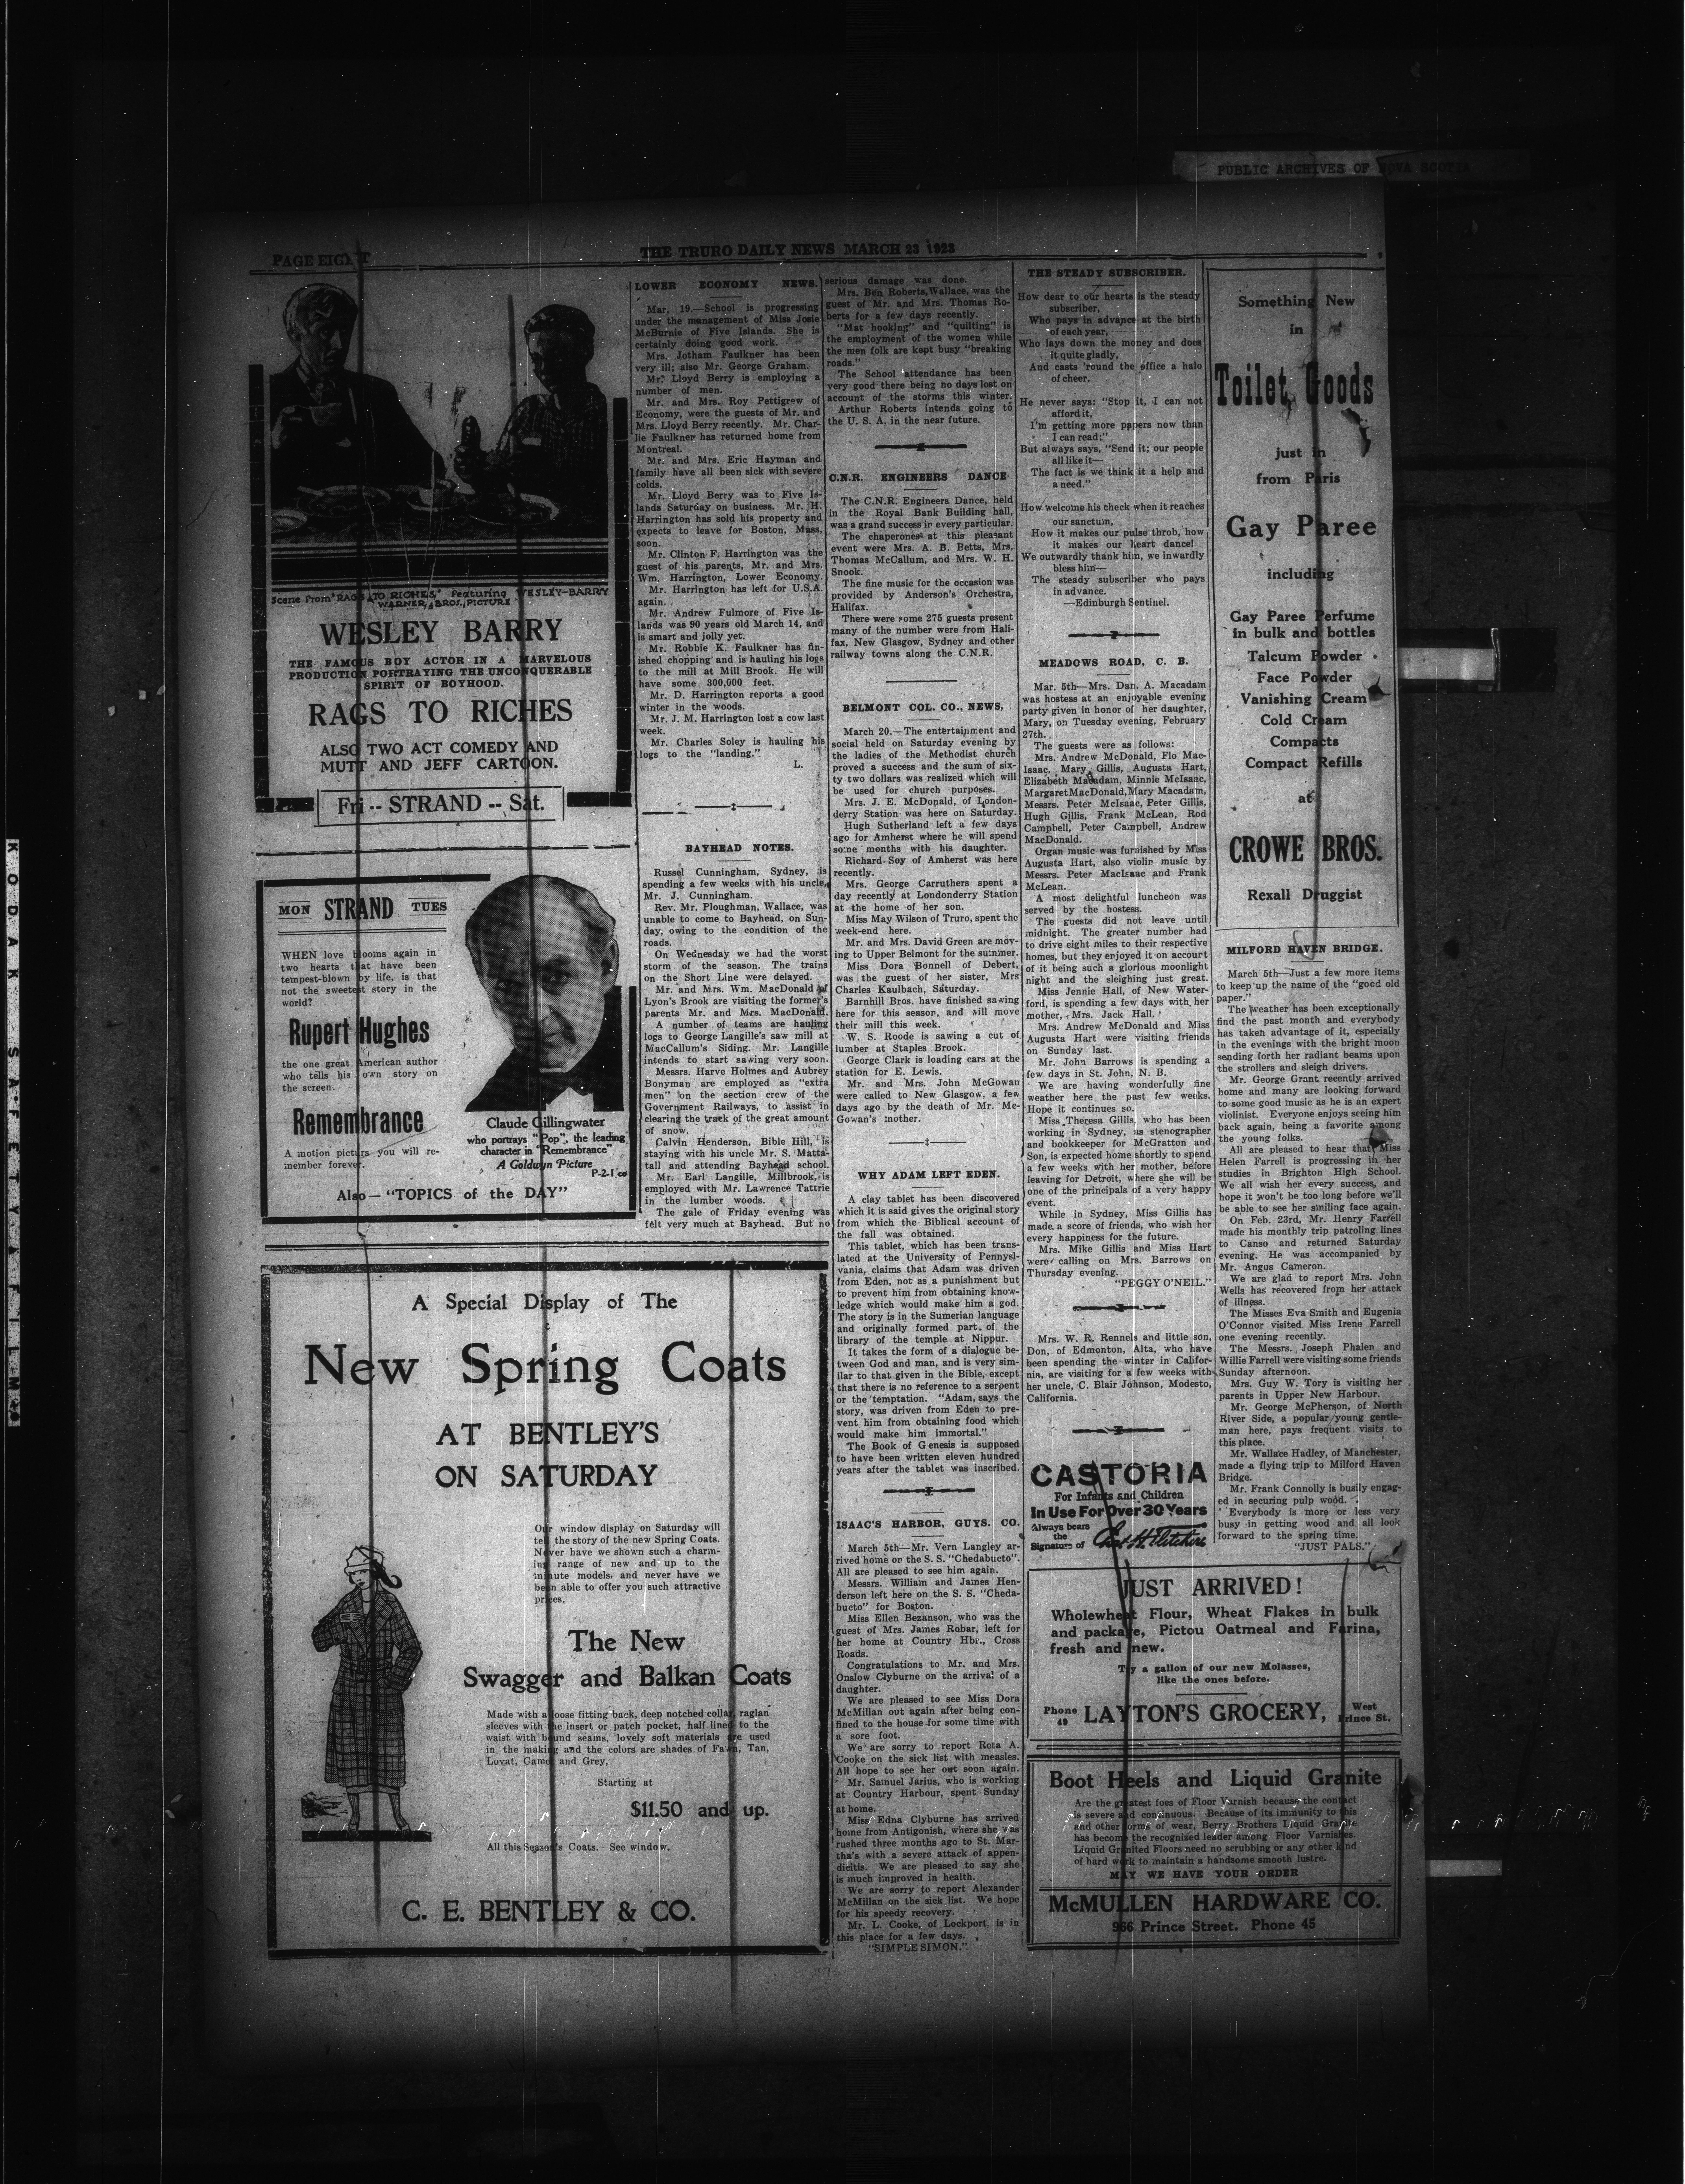 PUBLIC ARCHIVES OF NOVA SCOTIA
PAGE EIGHT
THE TRURO DAILY NEWS MARCH 23 1923
Scene from "RAGS TO RICHES" Featuring WESLEY BARRY
WARNER BROS. PICTURE
WESLEY BARRY
THE FAMOUS BOY ACTOR IN A MARVELOUS
PRODUCTION PORTRAYING THE UNCONQUERABLE
SPIRIT OF BOYHOOD.
RAGS TO RICHES
ALSO TWO ACT COMEDY AND
MUTT AND JEFF CARTOON.
Fri -- STRAND -- Sat.
MON STRAND TUES
WHEN love blooms again in
two hearts that have been
tempest-blown by life, is that
not the sweetest story in the
world?
Rupert Hughes
the one great American author
who tells his own story on
the screen.
Remembrance
A motion picture you will re-
member forever.
Claude Gillingwater
who portrays "Pop", the leading
character in "Remembrance"
A Goldwyn Picture
P-2-1 co
Also — "TOPICS of the DAY"
A Special Display of The
New Spring Coats
AT BENTLEY'S
ON SATURDAY
Our window display on Saturday will
tell the story of the new Spring Coats.
Never have we shown such a charm-
ing range of new and up to the
minute models, and never have we
been able to offer you such attractive
prices.
The New
Swagger and Balkan Coats
Made with a loose fitting back, deep notched collar, raglan
sleeves with the insert or patch pocket, half lined to the
waist with bound seams, lovely soft materials are used
in the making and the colors are shades of Fawn, Tan,
Lovat, Camel and Grey.
Starting at
$11.50 and up.
All this Season's Coats. See window.
C. E. BENTLEY & CO.
LOWER ECONOMY NEWS.
Mar. 19.—School is progressing
under the management of Miss Josie
McBurnie of Five Islands. She is
certainly doing good work.
Mrs. Jotham Faulkner has been
very ill; also Mr. George Graham.
Mr. Lloyd Berry is employing a
number of men.
Mr. and Mrs. Roy Pettigrew of
Economy, were the guests of Mr. and
Mrs. Lloyd Berry recently. Mr. Char-
lie Faulkner has returned home from
Montreal.
Mr. and Mrs. Eric Hayman and
family have all been sick with severe
colds.
Mr. Lloyd Berry was to Five Is-
lands Saturday on business. Mr. H.
Harrington has sold his property and
expects to leave for Boston, Mass.
soon.
Mr. Clinton F. Harrington was the
guest of his parents, Mr. and Mrs.
Wm. Harrington, Lower Economy.
Mr. Harrington has left for U.S.A.
again.
Mr. Andrew Fulmore of Five Is-
lands was 90 years old March 14, and
is smart and jolly yet.
Mr. Robbie K. Faulkner has fin-
ished chopping and is hauling his logs
to the mill at Mill Brook. He will
have some 300,000 feet.
Mr. D. Harrington reports a good
winter in the woods.
Mr. J. M. Harrington lost a cow last
week.
Mr. Charles Soley is hauling his
logs to the "landing."
L.
BAYHEAD NOTES.
Russel Cunningham, Sydney, is
spending a few weeks with his uncle,
Mr. J. Cunningham.
Rev. Mr. Ploughman, Wallace, was
unable to come to Bayhead, on Sun-
day, owing to the condition of the
roads.
On Wednesday we had the worst
storm of the season. The trains
on the Short Line were delayed.
Mr. and Mrs. Wm. MacDonald of
Lyon's Brook are visiting the former's
parents Mr. and Mrs. MacDonald.
A number of teams are hauling
logs to George Langille's saw mill at
MacCallum's Siding. Mr. Langille
intends to start sawing very soon.
Messrs. Harve Holmes and Aubrey
Bonyman are employed as "extra
men" on the section crew of the
Government Railways, to assist in
clearing the track of the great amount
of snow.
Calvin Henderson, Bible Hill, is
staying with his uncle Mr. S. Matta-
tall and attending Bayhead school.
Mr. Earl Langille, Millbrook, is
employed with Mr. Lawrence Tattrie
in the lumber woods.
The gale of Friday evening was
felt very much at Bayhead. But no
serious damage was done.
Mrs. Ben Roberts, Wallace, was the
guest of Mr. and Mrs. Thomas Ro-
berts for a few days recently.
"Mat hooking" and "quilting" is
the employment of the women while
the men folk are kept busy "breaking
roads."
The School attendance has been
very good there being no days lost on
account of the storms this winter.
Arthur Roberts intends going to
the U. S. A. in the near future.
C.N.R. ENGINEERS DANCE
The C.N.R. Engineers Dance, held
in the Royal Bank Building hall,
was a grand success in every particular.
The chaperones at this pleasant
event were Mrs. A. B. Betts, Mrs.
Thomas McCallum, and Mrs. W. H.
Snook.
The fine music for the occasion was
provided by Anderson's Orchestra,
Halifax.
There were some 275 guests present
many of the number were from Hali-
fax, New Glasgow, Sydney and other
railway towns along the C.N.R.
BELMONT COL. CO., NEWS.
March 20.—The entertainment and
social held on Saturday evening by
the ladies of the Methodist church
proved a success and the sum of six-
ty two dollars was realized which will
be used for church purposes.
Mrs. J. E. McDonald, of London-
derry Station was here on Saturday.
Hugh Sutherland left a few days
ago for Amherst where he will spend
some months with his daughter.
Richard Soy of Amherst was here
recently.
Mrs. George Carruthers spent a
day recently at Londonderry Station
at the home of her son.
Miss May Wilson of Truro, spent the
week-end here.
Mr. and Mrs. David Green are mov-
ing to Upper Belmont for the summer.
Miss Dora Bonnell of Debert,
was the guest of her sister, Mrs
Charles Kaulbach, Saturday.
Barnhill Bros. have finished sawing
here for this season, and will move
their mill this week.
W. S. Roode is sawing a cut of
lumber at Staples Brook.
George Clark is loading cars at the
station for E. Lewis.
Mr. and Mrs. John McGowan
were called to New Glasgow, a few
days ago by the death of Mr. Mc-
Gowan's mother.
WHY ADAM LEFT EDEN.
A clay tablet has been discovered
which it is said gives the original story
from which the Biblical account of
the fall was obtained.
This tablet, which has been trans-
lated at the University of Pennysl-
vania, claims that Adam was driven
from Eden, not as a punishment but
to prevent him from obtaining know-
ledge which would make him a god.
The story is in the Sumerian language
and originally formed part of the
library of the temple at Nippur.
It takes the form of a dialogue be-
tween God and man, and is very sim-
ilar to that given in the Bible, except
that there is no reference to a serpent
or the temptation. "Adam, says the
story, was driven from Eden to pre-
vent him from obtaining food which
would make him immortal."
The Book of Genesis is supposed
to have been written eleven hundred
years after the tablet was inscribed.
ISAAC'S HARBOR, GUYS. CO.
March 5th—Mr. Vern Langley ar-
rived home on the S. S. "Chedabucto".
All are pleased to see him again.
Messrs. William and James Hen-
derson left here on the S. S. "Cheda-
bucto" for Boston.
Miss Ellen Bezanson, who was the
guest of Mrs. James Robar, left for
her home at Country Hbr., Cross
Roads.
Congratulations to Mr. and Mrs.
Onslow Clyburne on the arrival of a
daughter.
We are pleased to see Miss Dora
McMillan out again after being con-
fined to the house for some time with
a sore foot.
We are sorry to report Reta A.
Cooke on the sick list with measles.
All hope to see her out soon again.
Mr. Samuel Jarius, who is working
at Country Harbour, spent Sunday
at home.
Miss Edna Clyburne has arrived
home from Antigonish, where she was
rushed three months ago to St. Mar-
tha's with a severe attack of appen-
dicitis. We are pleased to say she
is much improved in health.
We are sorry to report Alexander
McMillan on the sick list. We hope
for his speedy recovery.
Mr. L. Cooke, of Lockport, is in
this place for a few days.
"SIMPLE SIMON."
THE STEADY SUBSCRIBER.
How dear to our hearts is the steady
subscriber,
Who pays in advance at the birth
of each year,
Who lays down the money and does
it quite gladly,
And casts 'round the office a halo
of cheer.
He never says: "Stop it, I can not
afford it,
I'm getting more papers now than
I can read;"
But always says, "Send it; our people
all like it—
The fact is we think it a help and
a need."
How welcome his check when it reaches
our sanctum,
How it makes our pulse throb, how
it makes our heart dance!
We outwardly thank him, we inwardly
bless him—
The steady subscriber who pays
in advance.
—Edinburgh Sentinel.
MEADOWS ROAD, C. B.
Mar. 5th—Mrs. Dan. A. Macadam
was hostess at an enjoyable evening
party given in honor of her daughter,
Mary, on Tuesday evening, February
27th.
The guests were as follows:
Mrs. Andrew McDonald, Flo Mac-
Isaac, Mary Gillis, Augusta Hart,
Elizabeth Macadam, Minnie McIsaac,
Margaret MacDonald, Mary Macadam,
Messrs. Peter McIsaac, Peter Gillis,
Hugh Gillis, Frank McLean, Rod
Campbell, Peter Campbell, Andrew
MacDonald.
Organ music was furnished by Miss
Augusta Hart, also violin music by
Messrs. Peter MacIsaac and Frank
McLean.
A most delightful luncheon was
served by the hostess.
The guests did not leave until
midnight. The greater number had
to drive eight miles to their respective
homes, but they enjoyed it on account
of it being such a glorious moonlight
night and the sleighing just great.
Miss Jennie Hall, of New Water-
ford, is spending a few days with her
mother, Mrs. Jack Hall.
Mrs. Andrew McDonald and Miss
Augusta Hart were visiting friends
on Sunday last.
Mr. John Barrows is spending a
few days in St. John, N. B.
We are having wonderfully fine
weather here the past few weeks.
Hope it continues so.
Miss Theresa Gillis, who has been
working in Sydney, as stenographer
and bookkeeper for McGratton and
Son, is expected home shortly to spend
a few weeks with her mother, before
leaving for Detroit, where she will be
one of the principals of a very happy
event.
While in Sydney, Miss Gillis has
made a score of friends, who wish her
every happiness for the future.
Mrs. Mike Gillis and Miss Hart
were calling on Mrs. Barrows on
Thursday evening.
"PEGGY O'NEIL."
Mrs. W. R. Rennels and little son,
Don, of Edmonton, Alta, who have
been spending the winter in Califor-
nia, are visiting for a few weeks with
her uncle, C. Blair Johnson, Modesto,
California.
CASTORIA
For Infants and Children
In Use For Over 30 Years
Always bears
the
Signature of
Chas. H. Fletcher
Something New
in
Toilet Goods
just in
from Paris
Gay Paree
including
Gay Paree Perfume
in bulk and bottles
Talcum Powder
Face Powder
Vanishing Cream
Cold Cream
Compacts
Compact Refills
at
CROWE BROS.
Rexall Druggist
MILFORD HAVEN BRIDGE.
March 5th—Just a few more items
to keep up the name of the "good old
paper."
The weather has been exceptionally
find the past month and everybody
has taken advantage of it, especially
in the evenings with the bright moon
sending forth her radiant beams upon
the strollers and sleigh drivers.
Mr. George Grant recently arrived
home and many are looking forward
to some good music as he is an expert
violinist. Everyone enjoys seeing him
back again, being a favorite among
the young folks.
All are pleased to hear that Miss
Helen Farrell is progressing in her
studies in Brighton High School.
We all wish her every success, and
hope it won't be too long before we'll
be able to see her smiling face again.
On Feb. 23rd, Mr. Henry Farrell
made his monthly trip patroling lines
to Canso and returned Saturday
evening. He was accompanied by
Mr. Angus Cameron.
We are glad to report Mrs. John
Wells has recovered from her attack
of illness.
The Misses Eva Smith and Eugenia
O'Connor visited Miss Irene Farrell
one evening recently.
The Messrs. Joseph Phalen and
Willie Farrell were visiting some friends
Sunday afternoon.
Mrs. Guy W. Tory is visiting her
parents in Upper New Harbour.
Mr. George McPherson, of North
River Side, a popular young gentle-
man here, pays frequent visits to
this place.
Mr. Wallace Hadley, of Manchester,
made a flying trip to Milford Haven
Bridge.
Mr. Frank Connolly is busily engag-
ed in securing pulp wood.
Everybody is more or less very
busy in getting wood and all look
forward to the spring time.
"JUST PALS."
JUST ARRIVED!
Wholewheat Flour, Wheat Flakes in bulk
and package, Pictou Oatmeal and Farina,
fresh and new.
Try a gallon of our new Molasses,
like the ones before.
Phone
49
LAYTON'S GROCERY,
West
Prince St.
Boot Heels and Liquid Granite
Are the greatest foes of Floor Varnish because the contact
is severe and continuous. Because of its immunity to this
and other forms of wear, Berry Brothers Liquid Granite
has become the recognized leader among Floor Varnishes.
Liquid Granited Floors need no scrubbing or any other kind
of hard work to maintain a handsome smooth lustre.
MAY WE HAVE YOUR ORDER
McMULLEN HARDWARE CO.
966 Prince Street. Phone 45
KODAK SAFETY FILM